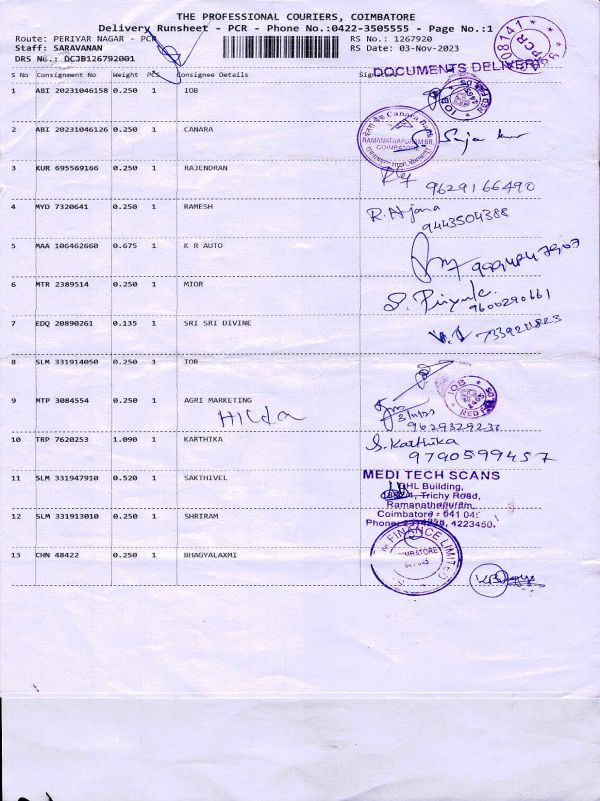 THE PROFESSIONAL COURIERS, COIMBATORE
Delivery Runsheet - PCR - Phone No.:0422-3505555 - Page No.:1
Route: PERIYAR NAGAR - PCR RS No.: 1267920
Staff: SARAVANAN RS Date: 03-Nov-2023
DRS No.: DCJB126792001
PCR
DOCUMENTS DELIVERY
S No Consignment No Weight PCS Consignee Details
1 ABI 20231046158 0.250 1 IOB
IOB
2 ABI 20231046126 0.250 1 CANARA
Canara Bank
RAMANATHAPURAM BR.
COIMBATORE
3 KUR 695569166 0.250 1 RAJENDRAN
9629166490
4 MYD 7320641 0.250 1 RAMESH
9443504388
5 MAA 106462660 0.675 1 K R AUTO
6 MTR 2389514 0.250 1 MIOR
S. Priyanka
9600290661
7 EDQ 20890261 0.135 1 SRI SRI DIVINE
8 SLM 331914050 0.250 1 IOB
IOB
9 MTP 3084554 0.250 1 AGRI MARKETING
Hilda
10 TRP 7620253 1.090 1 KARTHIKA
S. Karthika
9790599457
11 SLM 331947910 0.520 1 SAKTHIVEL
MEDI TECH SCANS
BHL Building,
Trichy Road,
Ramanathapuram,
12 SLM 331913010 0.250 1 SHRIRAM
Coimbatore - 641 045
4223450.
FINANCE LIMITED
COIMBATORE
13 CHN 48422 0.250 1 BHAGYALAXMI